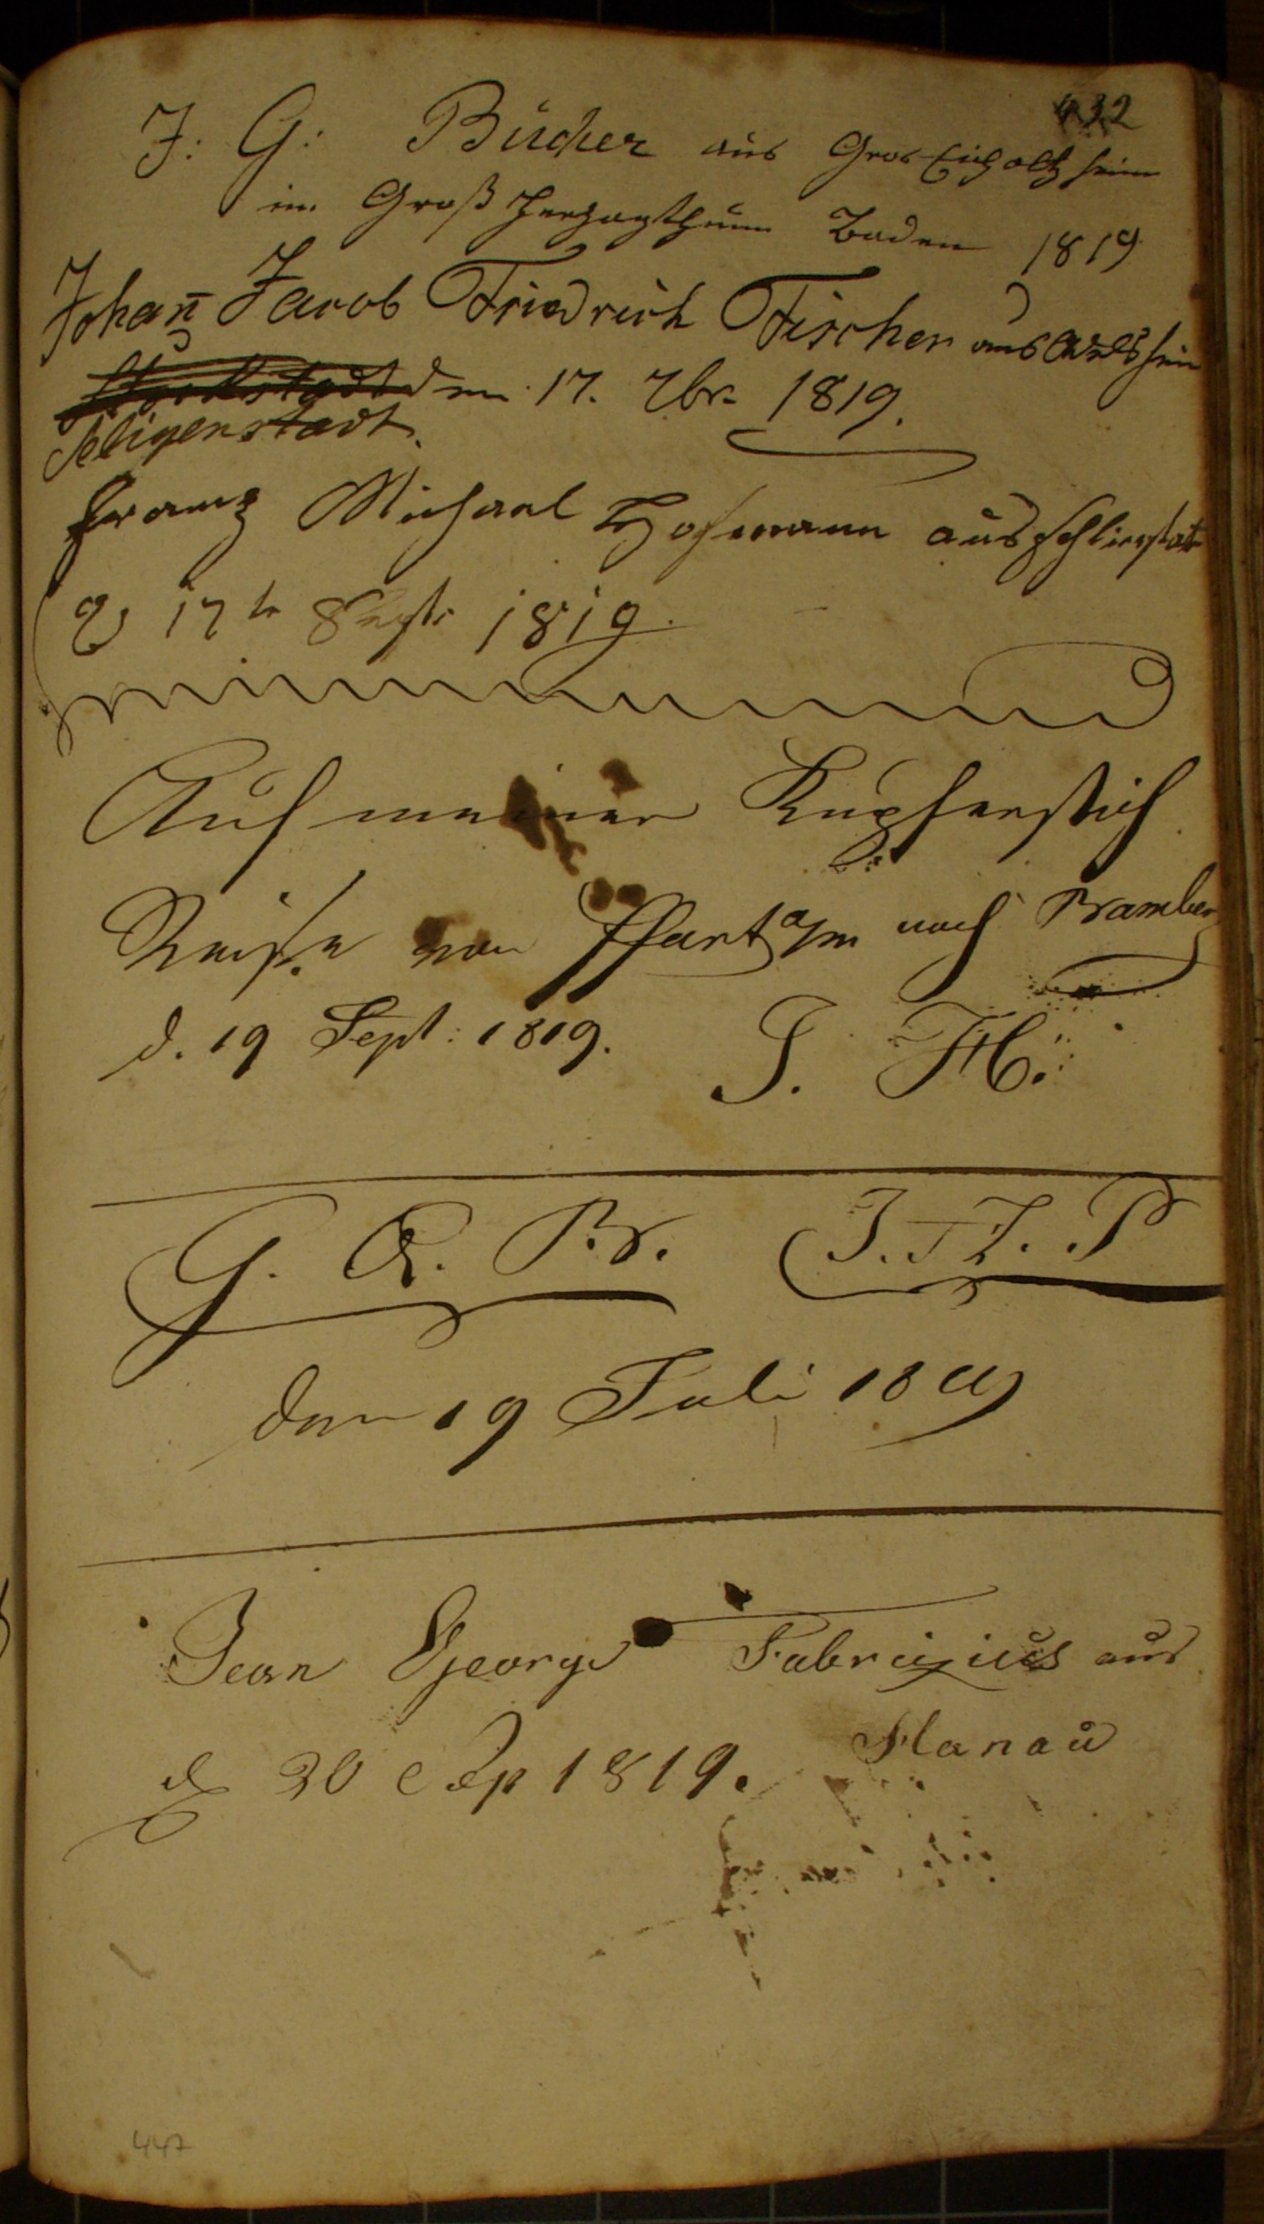 432
J: G: Bücher aus Gros Eicholtzheim
im Großherzogthum Baden 1819
Johan̄ Jacob Friedrich Fischer aus
den 17. 7br. 1819.
Seligenstadt.
Franz Michael Hofmann aus Schlierstatt
D 17te Sept 1819.
Auf meiner Kupferstich
Reise von Ffurt a/m nach Bamberg
d. 19 Sept: 1819. J. H.
G. A. Br. J. F. Z. P
den 19 Juli 1819
Jean George Fabrizius aus
Hanau
d 20 Sep 1819.
447